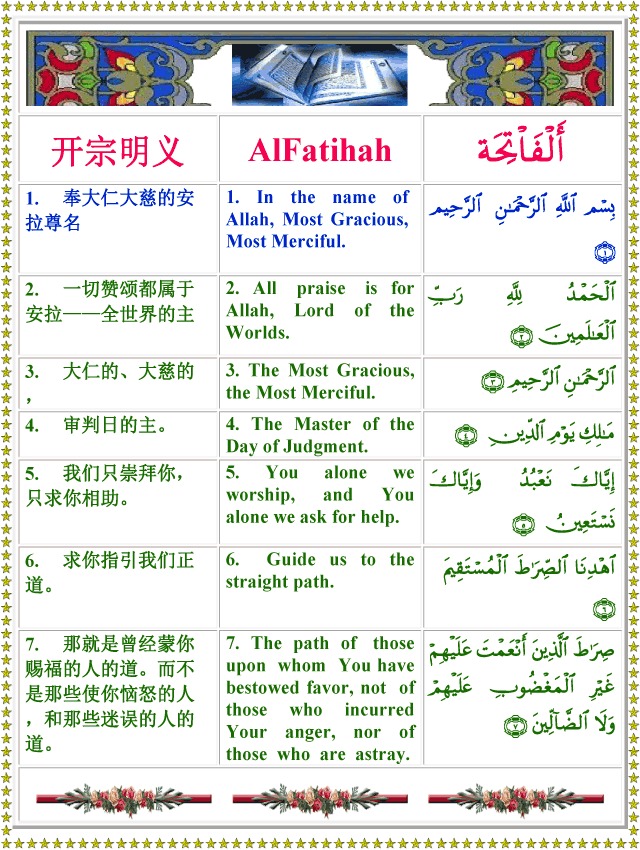 开宗明义
AlFatihah
أَلْفَاتِحَة
1. 奉大仁大慈的安
拉尊名
1. In the name of
Allah, Most Gracious,
Most Merciful.
بِسْمِ ٱللَّهِ ٱلرَّحْمَـٰنِ ٱلرَّحِيمِ
١
2. 一切赞颂都属于
安拉——全世界的主
2. All praise is for
Allah, Lord of the
Worlds.
ٱلْحَمْدُ لِلَّهِ رَبِّ
ٱلْعَـٰلَمِينَ ٢
3. 大仁的、大慈的
，
3. The Most Gracious,
the Most Merciful.
ٱلرَّحْمَـٰنِ ٱلرَّحِيمِ ٣
4. 审判日的主。
4. The Master of the
Day of Judgment.
مَـٰلِكِ يَوْمِ ٱلدِّينِ ٤
5. 我们只崇拜你，
只求你相助。
5. You alone we
worship, and You
alone we ask for help.
إِيَّاكَ نَعْبُدُ وَإِيَّاكَ
نَسْتَعِينُ ٥
6. 求你指引我们正
道。
6. Guide us to the
straight path.
ٱهْدِنَا ٱلصِّرَٰطَ ٱلْمُسْتَقِيمَ
٦
7. 那就是曾经蒙你
赐福的人的道。而不
是那些使你恼怒的人
，和那些迷误的人的
道。
7. The path of those
upon whom You have
bestowed favor, not of
those who incurred
Your anger, nor of
those who are astray.
صِرَٰطَ ٱلَّذِينَ أَنْعَمْتَ عَلَيْهِمْ
غَيْرِ ٱلْمَغْضُوبِ عَلَيْهِمْ
وَلَا ٱلضَّآلِّينَ ٧